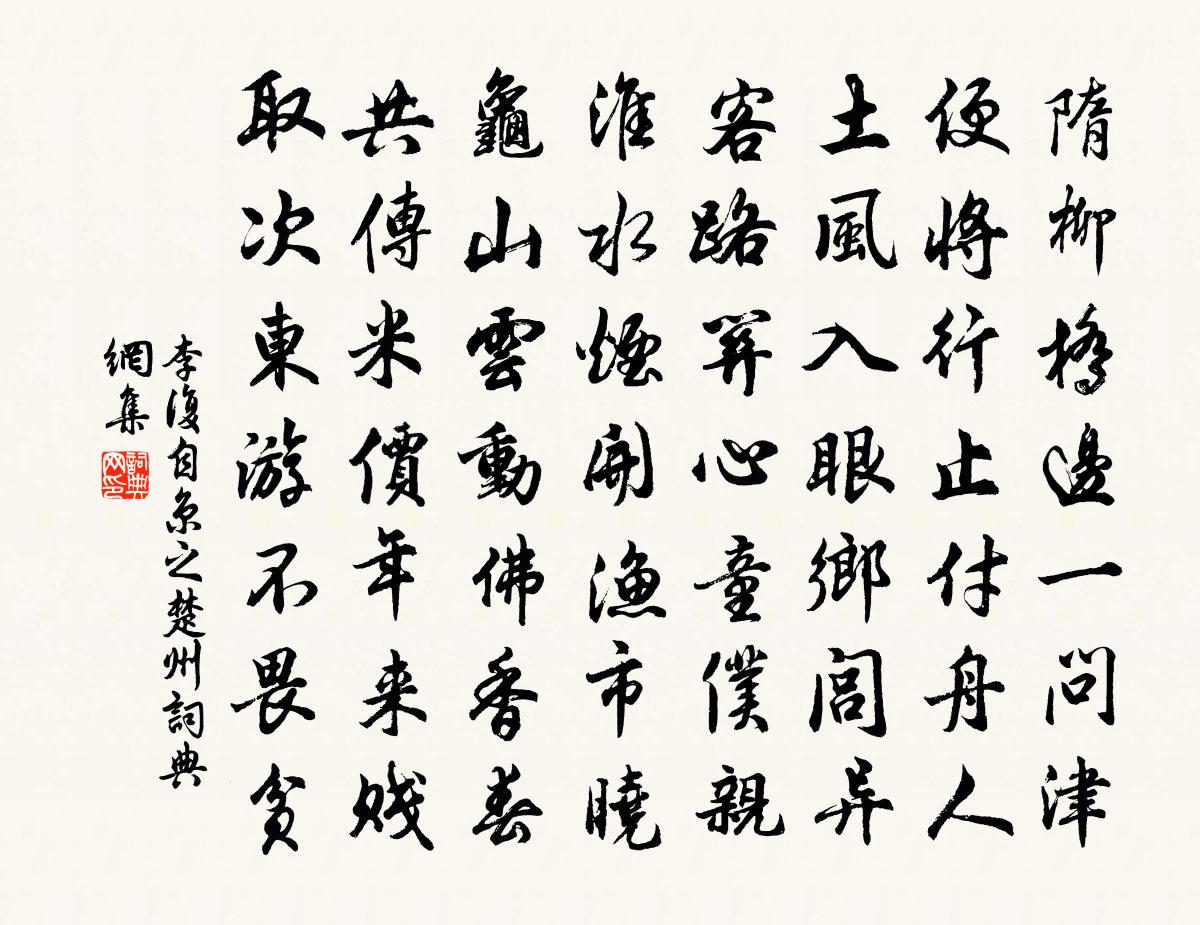 隋柳橋邊一問津
便將行止付舟人
土風入眼鄉閭异
客路筭心童僕親
淮水煙開漁市曉
龜山雲動佛香春
共傳米價年来賤
取次東游不畏貧
李復自京之楚州詞典
網集
詞典网印